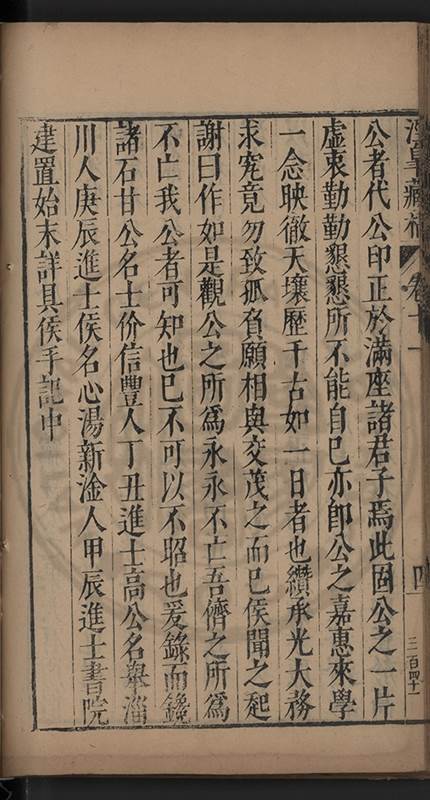 涇臯藏稿
卷十一
四
三百四十一
公者代公印正於滿座諸君子焉此固公之一片
虛衷勤勤懇懇所不能自已亦卽公之嘉惠來學
一念映徹天壤歷千古如一日者也纘承光大務
求究竟勿致孤負願相與交茂之而已侯聞之起
謝曰作如是觀公之所爲永永不亡吾儕之所爲
不亡我公者可知也已不可以不昭也爰錄而鑱
諸石甘公名士价信豐人丁丑進士高公名舉淄
川人庚辰進士侯名心湯新淦人甲辰進士書院
建置始末詳具侯手記中